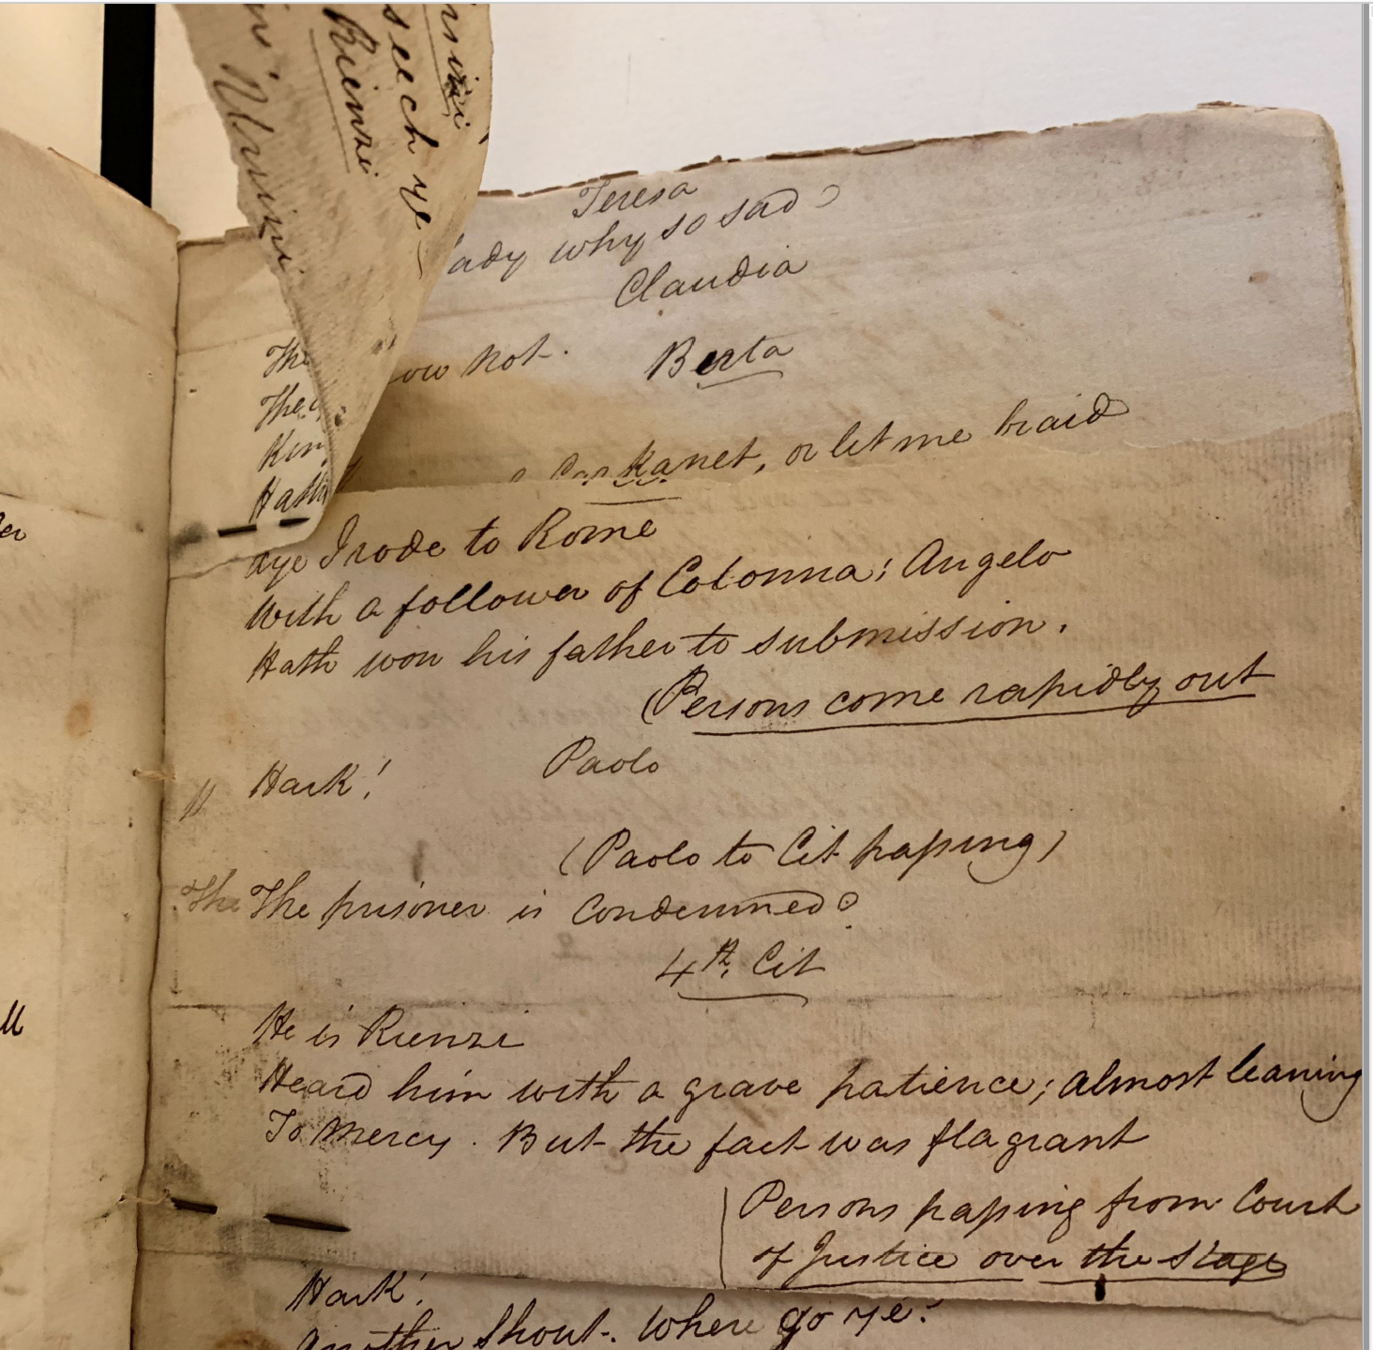 rsini
seech ye
Rienzi
Ursini
Teresa
lady why so sad?
Claudia
The
ow not.
Berta
The
Kin
Carkanet, or let me braid
Hath
aye I rode to Rome
With a follower of Colonna; Angelo
Hath won his father to submission.
(Persons come rapidly out
Paolo
Hark!
(Paolo to Cit paſsing)
The The prisoner is Condemned?
4th. Cit
He is Rienzi
Heard him with a grave patience; almost leaning
To Mercy. But the fact was flagrant
Persons paſsing from Court
of Justice over the Stage
Hark!
Another Shout. Where go ye?